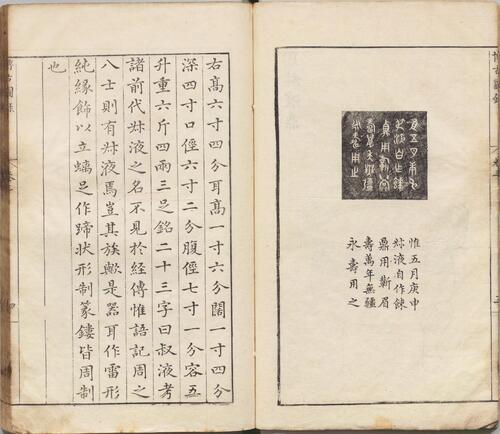 惟五月庚申
叔液自作餗
鼎用蘄眉
壽萬年無疆
永壽用之
右高六寸四分耳高一寸六分闊一寸四分
深四寸口俓六寸二分腹俓七寸一分容五
升重六斤四兩三足銘二十三字曰叔液考
諸前代叔液之名不見於經傳惟語記周之
八士則有叔液焉豈其族歟是器耳作雷形
純緣飾以立螭足作蹄狀形制篆鏤皆周制
也